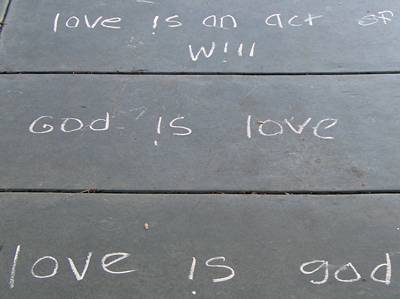 love is an act of
Will
God is love
love is god